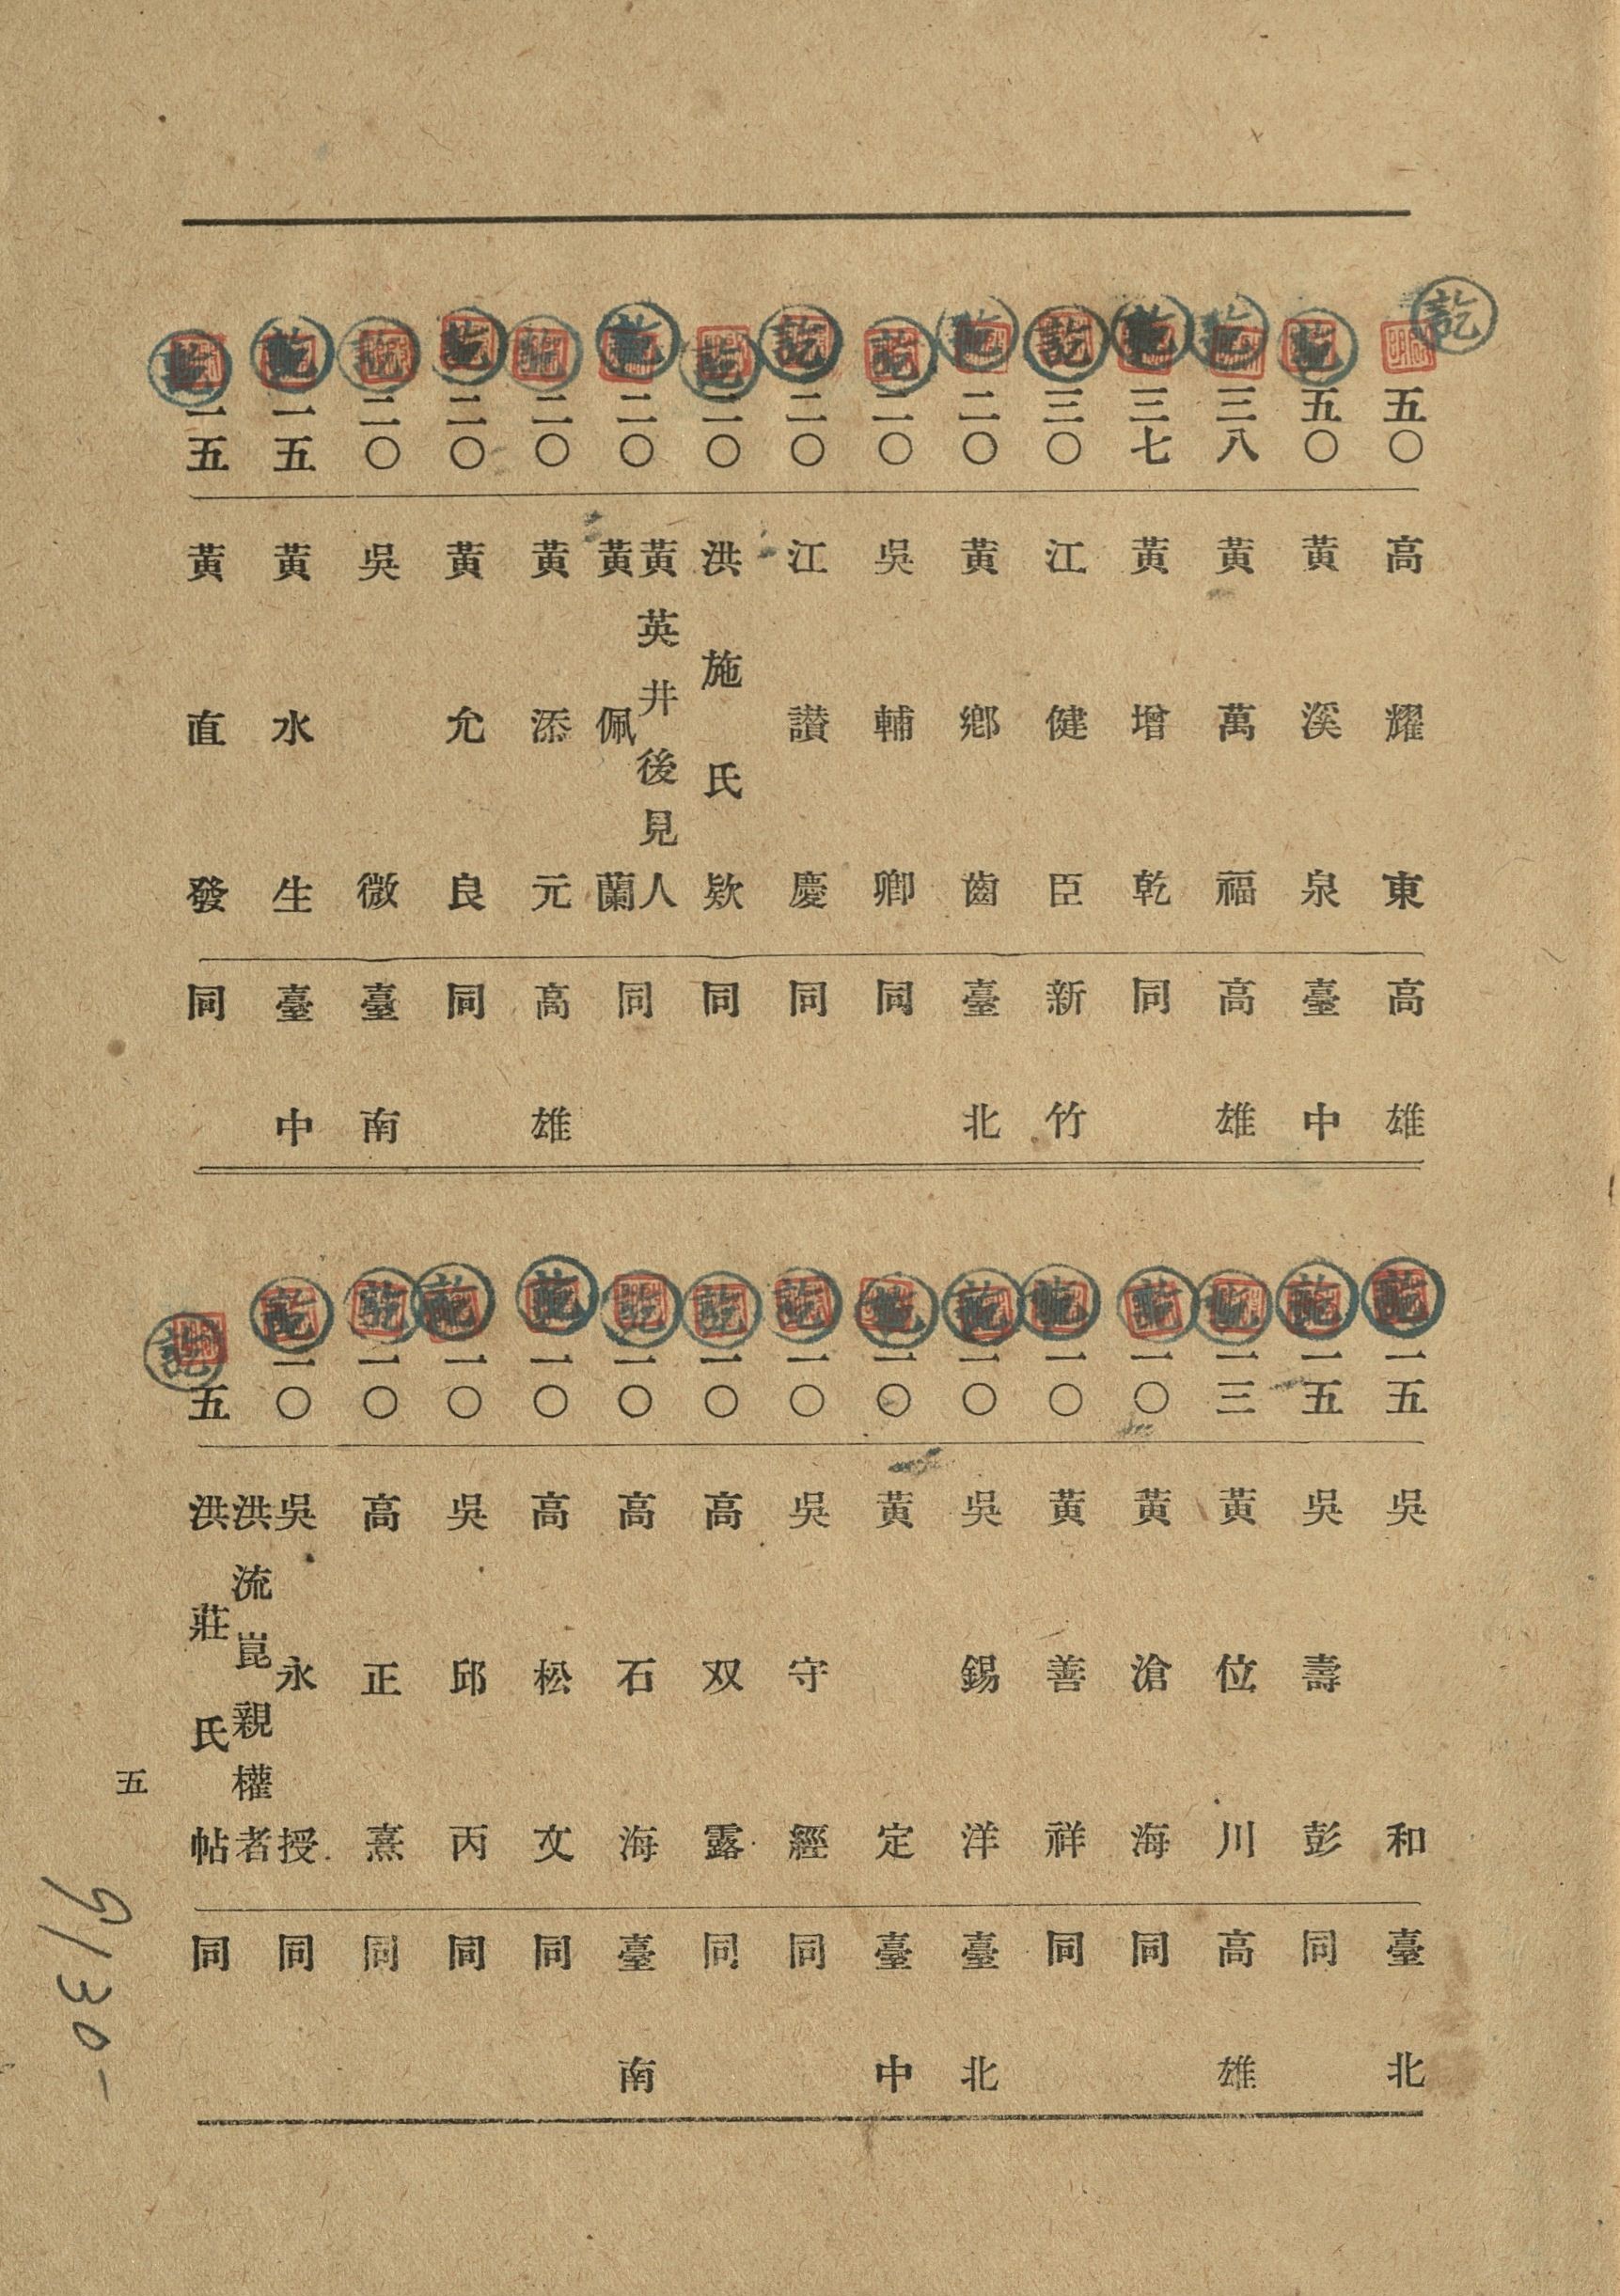 五〇 高耀東 高雄
五〇 黃溪泉 臺中
三八 黃萬福 高雄
三七 黃增乾 同
三〇 江健臣 新竹
二〇 黃鄉齒 臺北
二〇 吳輔卿 同
二〇 江讚慶 同
二〇 洪施氏欵 同
二〇 黃英井後見人 黃佩蘭 同
二〇 黃添元 高雄
二〇 黃允良 同
二〇 吳微 臺南
一五 黃水生 臺中
一五 黃直發 同
一五 吳和 臺北
一五 吳壽彭 同
一三 黃位川 高雄
一〇 黃滄海 同
一〇 黃善祥 同
一〇 吳錫洋 臺北
一〇 黃定 臺中
一〇 吳守經 同
一〇 高双露 同
一〇 高石海 臺南
一〇 高松文 同
一〇 吳邱丙 同
一〇 高正熹 同
一〇 吳永授 同
五 洪流崑親權者 洪莊氏帖 同
五
訖
9130-